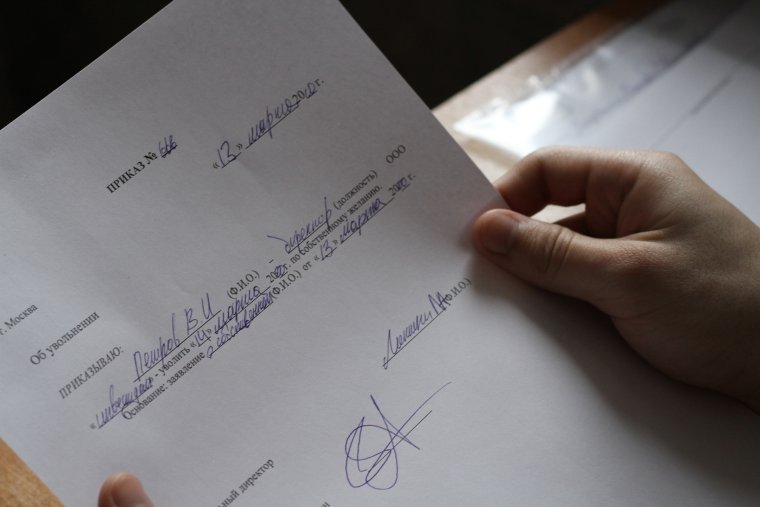 ПРИКАЗ № 66
« 13 » марта 2020 г.
г. Москва
Об увольнении
ПРИКАЗЫВАЮ:
Петров В И (Ф.И.О.) - директор (должность) ООО
« » - уволить « 14 » марта 2020 г. по собственному желанию.
Основание: заявление (Ф.И.О.) от « 13 » марта 2020 г.
(Ф.И.О.)
директор